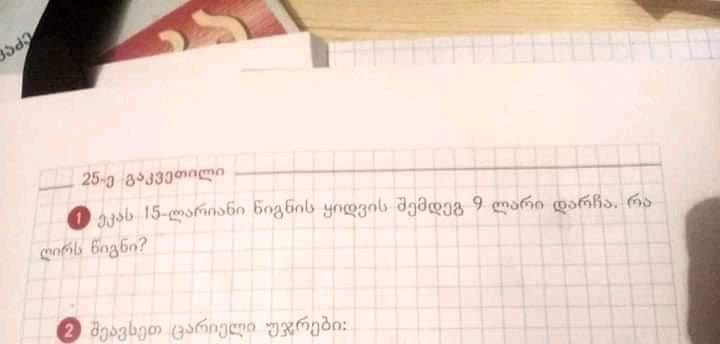 25-ე გაკვეთილი
1 ეკას 15-ლარიანი წიგნის ყიდვის შემდეგ 9 ლარი დარჩა. რა
ღირს წიგნი?
2 შეავსეთ ცარიელი უჯრები: